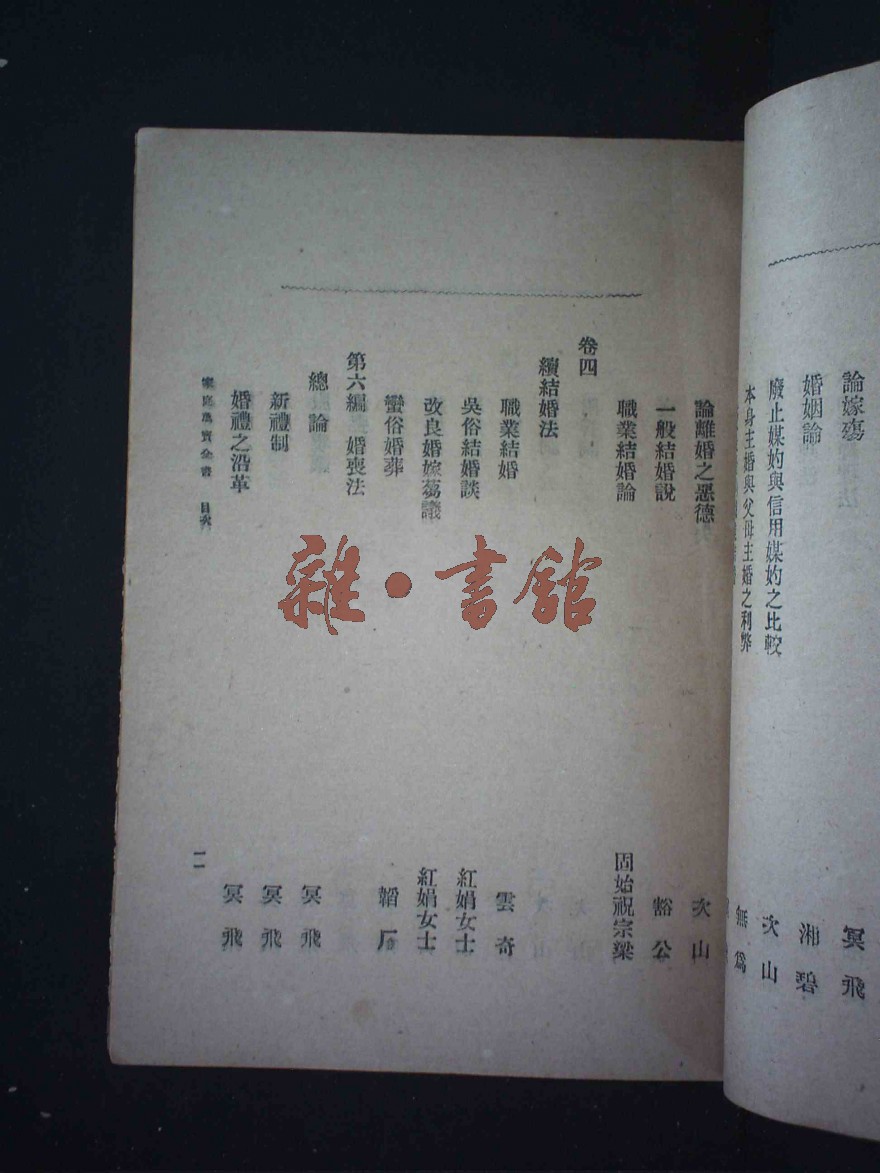 論嫁殤 冥飛
婚姻論 湘碧
廢止媒妁與信用媒妁之比較 次山
本身主婚與父母主婚之利弊 無為
論離婚之惡德 次山
一般結婚說 豁公
職業結婚論 固始祝宗梁
卷四
續結婚法
職業結婚 雲奇
吳俗結婚談 紅娟女士
改良婚嫁芻議 紅娟女士
蠻俗婚葬 韜厂
第六編 婚喪法
總論 冥飛
新禮制 冥飛
婚禮之沿革 冥飛
家庭萬寶全書 目次 二
雜·書館